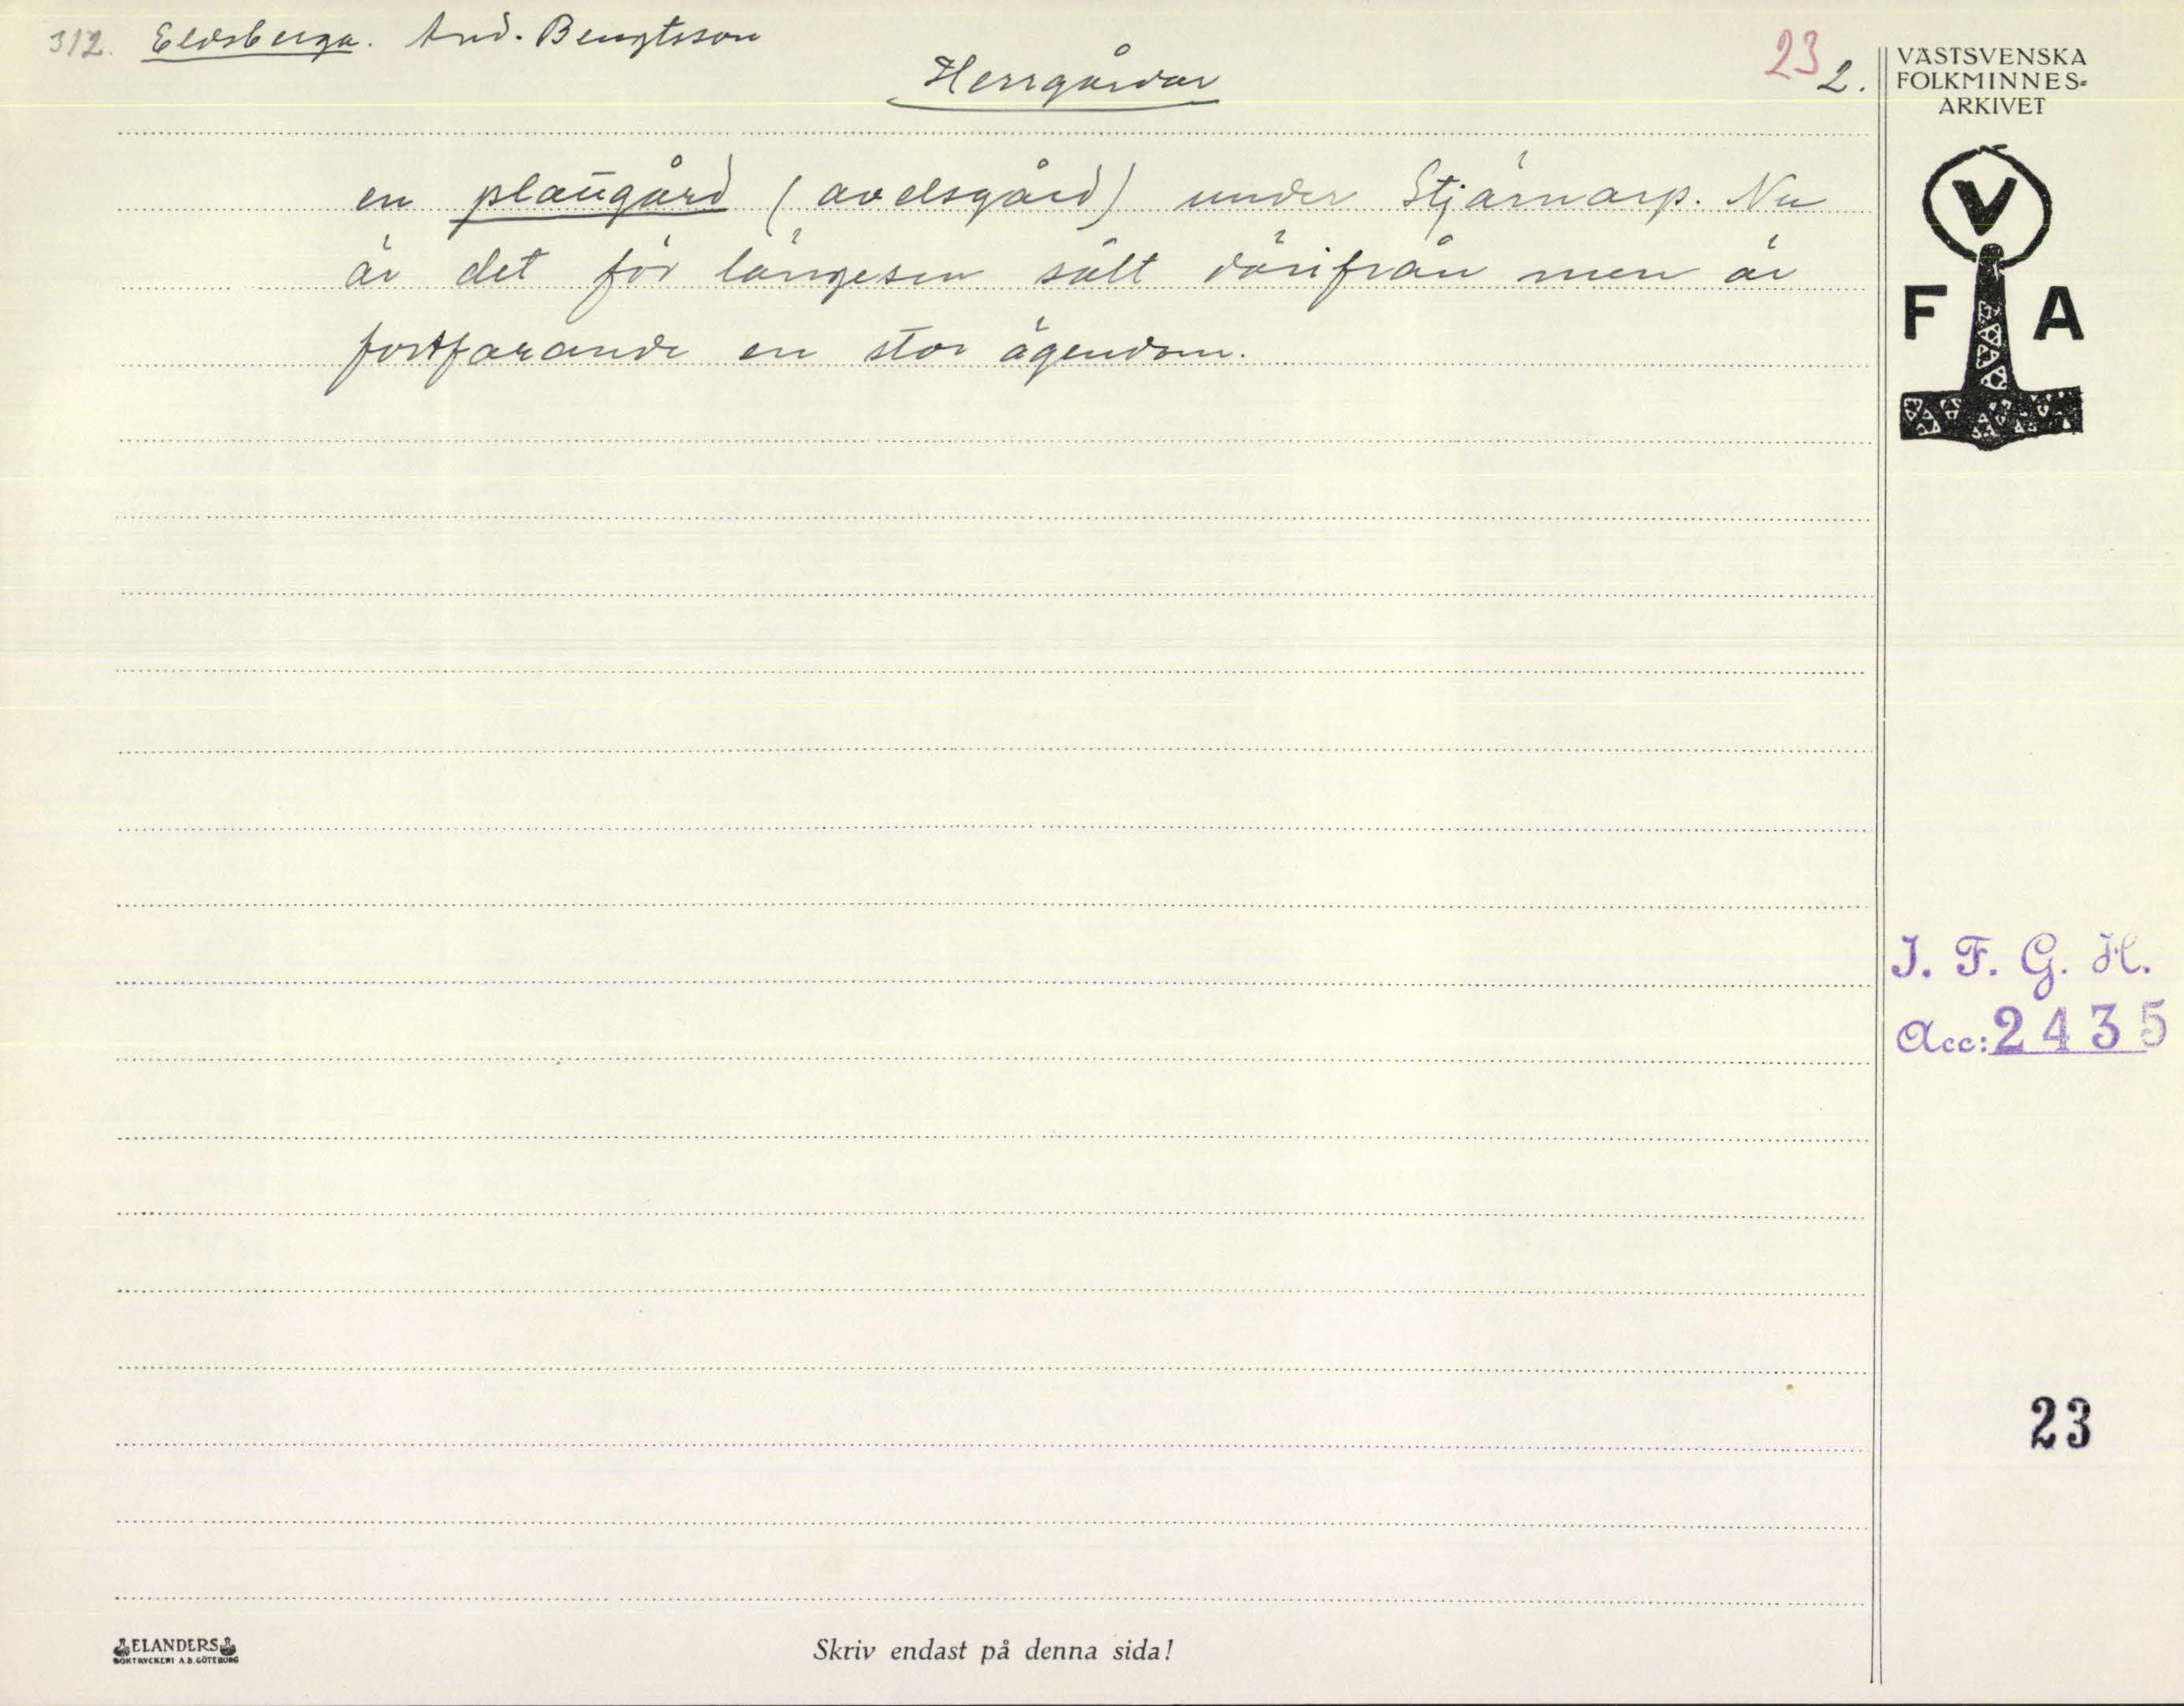 312. Eldsberga. And. Bengtsson
Herrgårdar
23 2.
en plaŭgård (avelsgård) under Stjärnarp. Nu
är det för längesen sålt därifrån men är
fortfarande en stor ägendom.
VÄSTSVENSKA
FOLKMINNES-
ARKIVET
V
F A
I. F. G. H.
Acc: 2435
23
ELANDERS
BOKTRYCKERI A.B. GÖTEBORG
Skriv endast på denna sida!